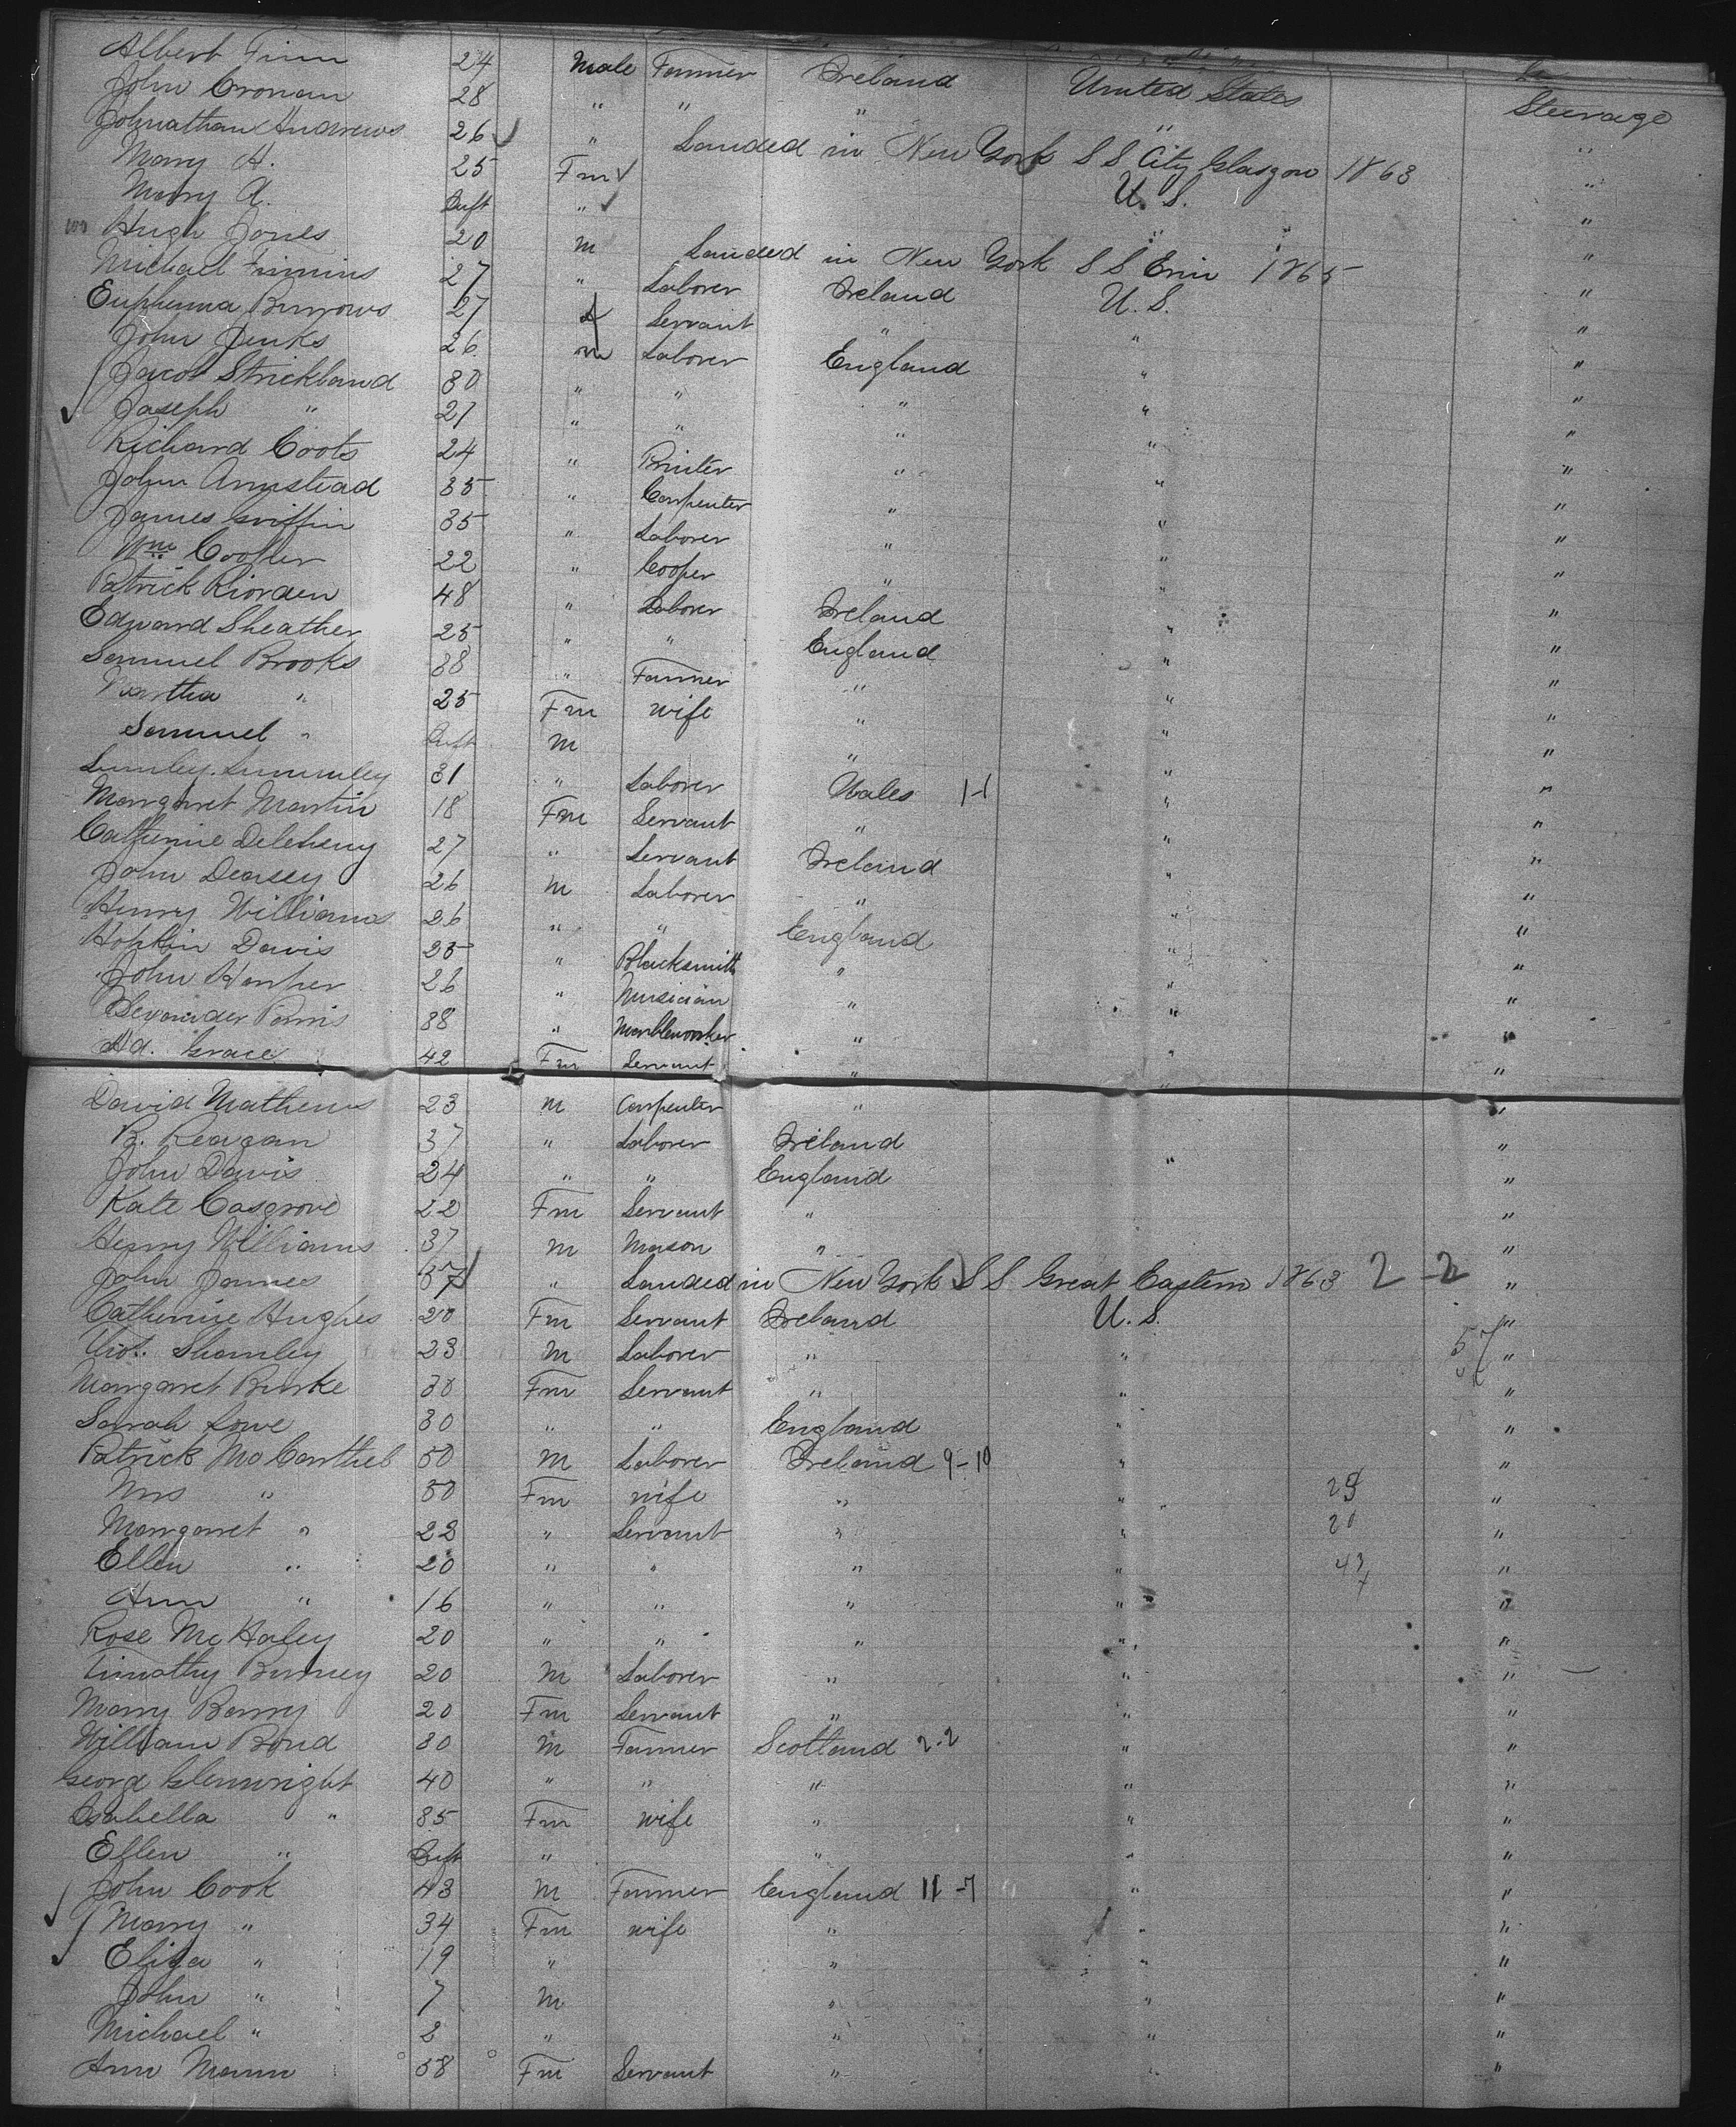 Albert Finn 24 Male Farmer Ireland United States Steerage
John Cronan 28 " " " " "
Johnathan Andrews 26 " Landed in New York S S City Glasgow 1863 "
Mary A. 25 Fm U. S. "
Mary A. Inft " " "
Hugh Jones 20 m Landed in New York S S Erin 1865 "
Michael Timmins 27 " Laborer Ireland U. S. "
Euphemia Burrows 27 f Servant " " "
John Jenks 26 m Laborer England " "
Jacob Strickland 30 " " " " "
Joseph " 21 " " " " "
Richard Coots 24 " Printer " " "
John Armstead 35 " Carpenter " " "
James Griffin 35 " Laborer " " "
Wm Cooper 22 " Cooper " " "
Patrick Riorden 48 " Laborer Ireland " "
Edward Sheather 25 " " England " "
Samuel Brooks 38 " Farmer " " "
Martha " 25 Fm wife " " "
Samuel " Inft m " " "
Lumley 31 " Laborer Wales 1-1 " "
Margaret Martin 18 Fm Servant " " "
Catherine Deleheny 27 " Servant Ireland " "
John Deasey 26 m Laborer " " "
Henry Williams 26 " " England " "
Hopkin Davis 25 " Blacksmith " " "
John Harper 26 " Musician " " "
Alexander Parris 38 " Marbleworker " " "
Ad. Grace 42 Fm Servant " " "
David Mathews 23 m Carpenter " "
R. Reagan 37 " Laborer Ireland "
John Davis 24 " " England " "
Kate Casgrove 22 Fm Servant " "
Henry Williams 37 m Mason " "
John James 37 " Landed in New York S S Great Eastern 1863 2 - 2 "
Catherine Hughes 20 Fm Servant Ireland U. S. "
Thos. Shanley 23 m Laborer " " 57 "
Margaret Burke 30 Fm Servant " " "
Sarah Lowe 30 " " England " "
Patrick McCarthel 50 m Laborer Ireland 9-10 " "
Mrs " 50 Fm wife " " "
Margaret " 22 " Servant " " 20 "
Ellen " 20 " " " " 43 "
Ann " 16 " " " " "
Rose McHaley 20 " " " " "
Timothy Burney 20 m Laborer " " "
Mary Barry 20 Fm Servant " " "
William Bond 30 m Farmer Scotland 2-2 " "
Georg Glenwright 40 " " " " "
Isabella " 35 Fm wife " " "
Ellen " Inft " " " "
John Cook 43 m Farmer England 11-7 " "
Mary " 34 Fm wife " " "
Eliza " 19 " " " "
John " 7 m " " "
Michael " 2 " " " "
Ann Mann 58 Fm Servant " " "